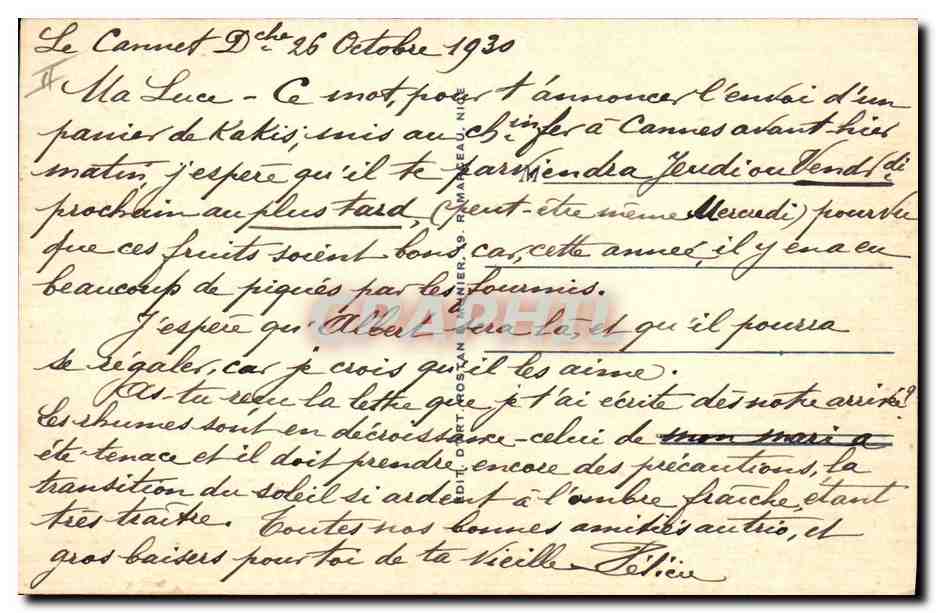 Le Cannet Dche 26 Octobre 1930
II
Ma Luce - Ce mot, pour t'annoncer l'envoi d'un
panier de Kakis, mis au chin fer à Cannes avant-hier
matin, j'espère qu'il te parviendra Jeudi ou Vendrdi
prochain au plus tard, (peut-être même Mercredi) pourvu
que ces fruits soient bons car, cette année, il y en a eu
beaucoup de piqués par les fourmis.
J'espère qu'Albert sera là, et qu'il pourra
se régaler, car je crois qu'il les aime.
As-tu reçu la lettre que je t'ai écrite dès notre arrivée?
Les rhumes sont en décroissance - celui de mon mari a
été tenace et il doit prendre encore des précautions, la
transition du soleil si ardent à l'ombre fraîche, étant
très traître. Toutes nos bonnes amitiés au trio, et
gros baisers pour toi de ta Vieille
EDIT. D'ART, ROSTAN & MUNIER, 19. R. MARCEAU. NICE
M
CPAPHIL